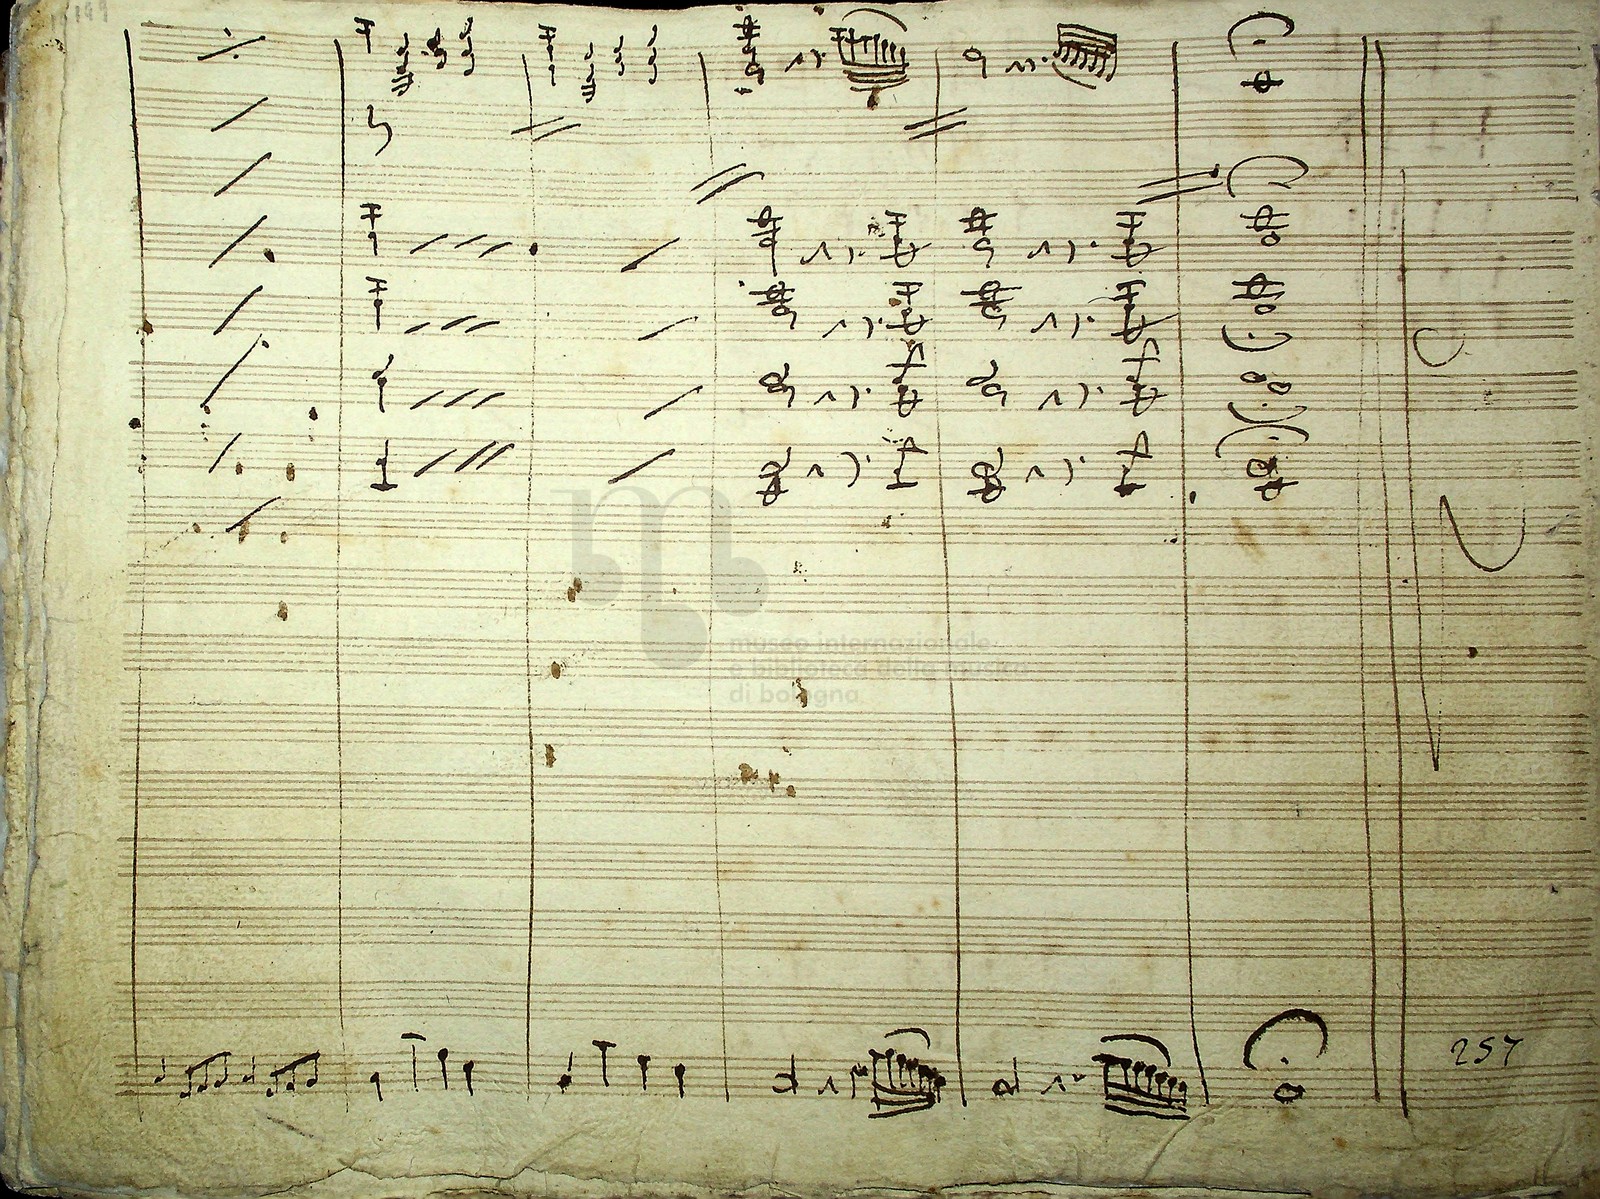 199
museo internazionale
e biblioteca della musica
di bologna
257